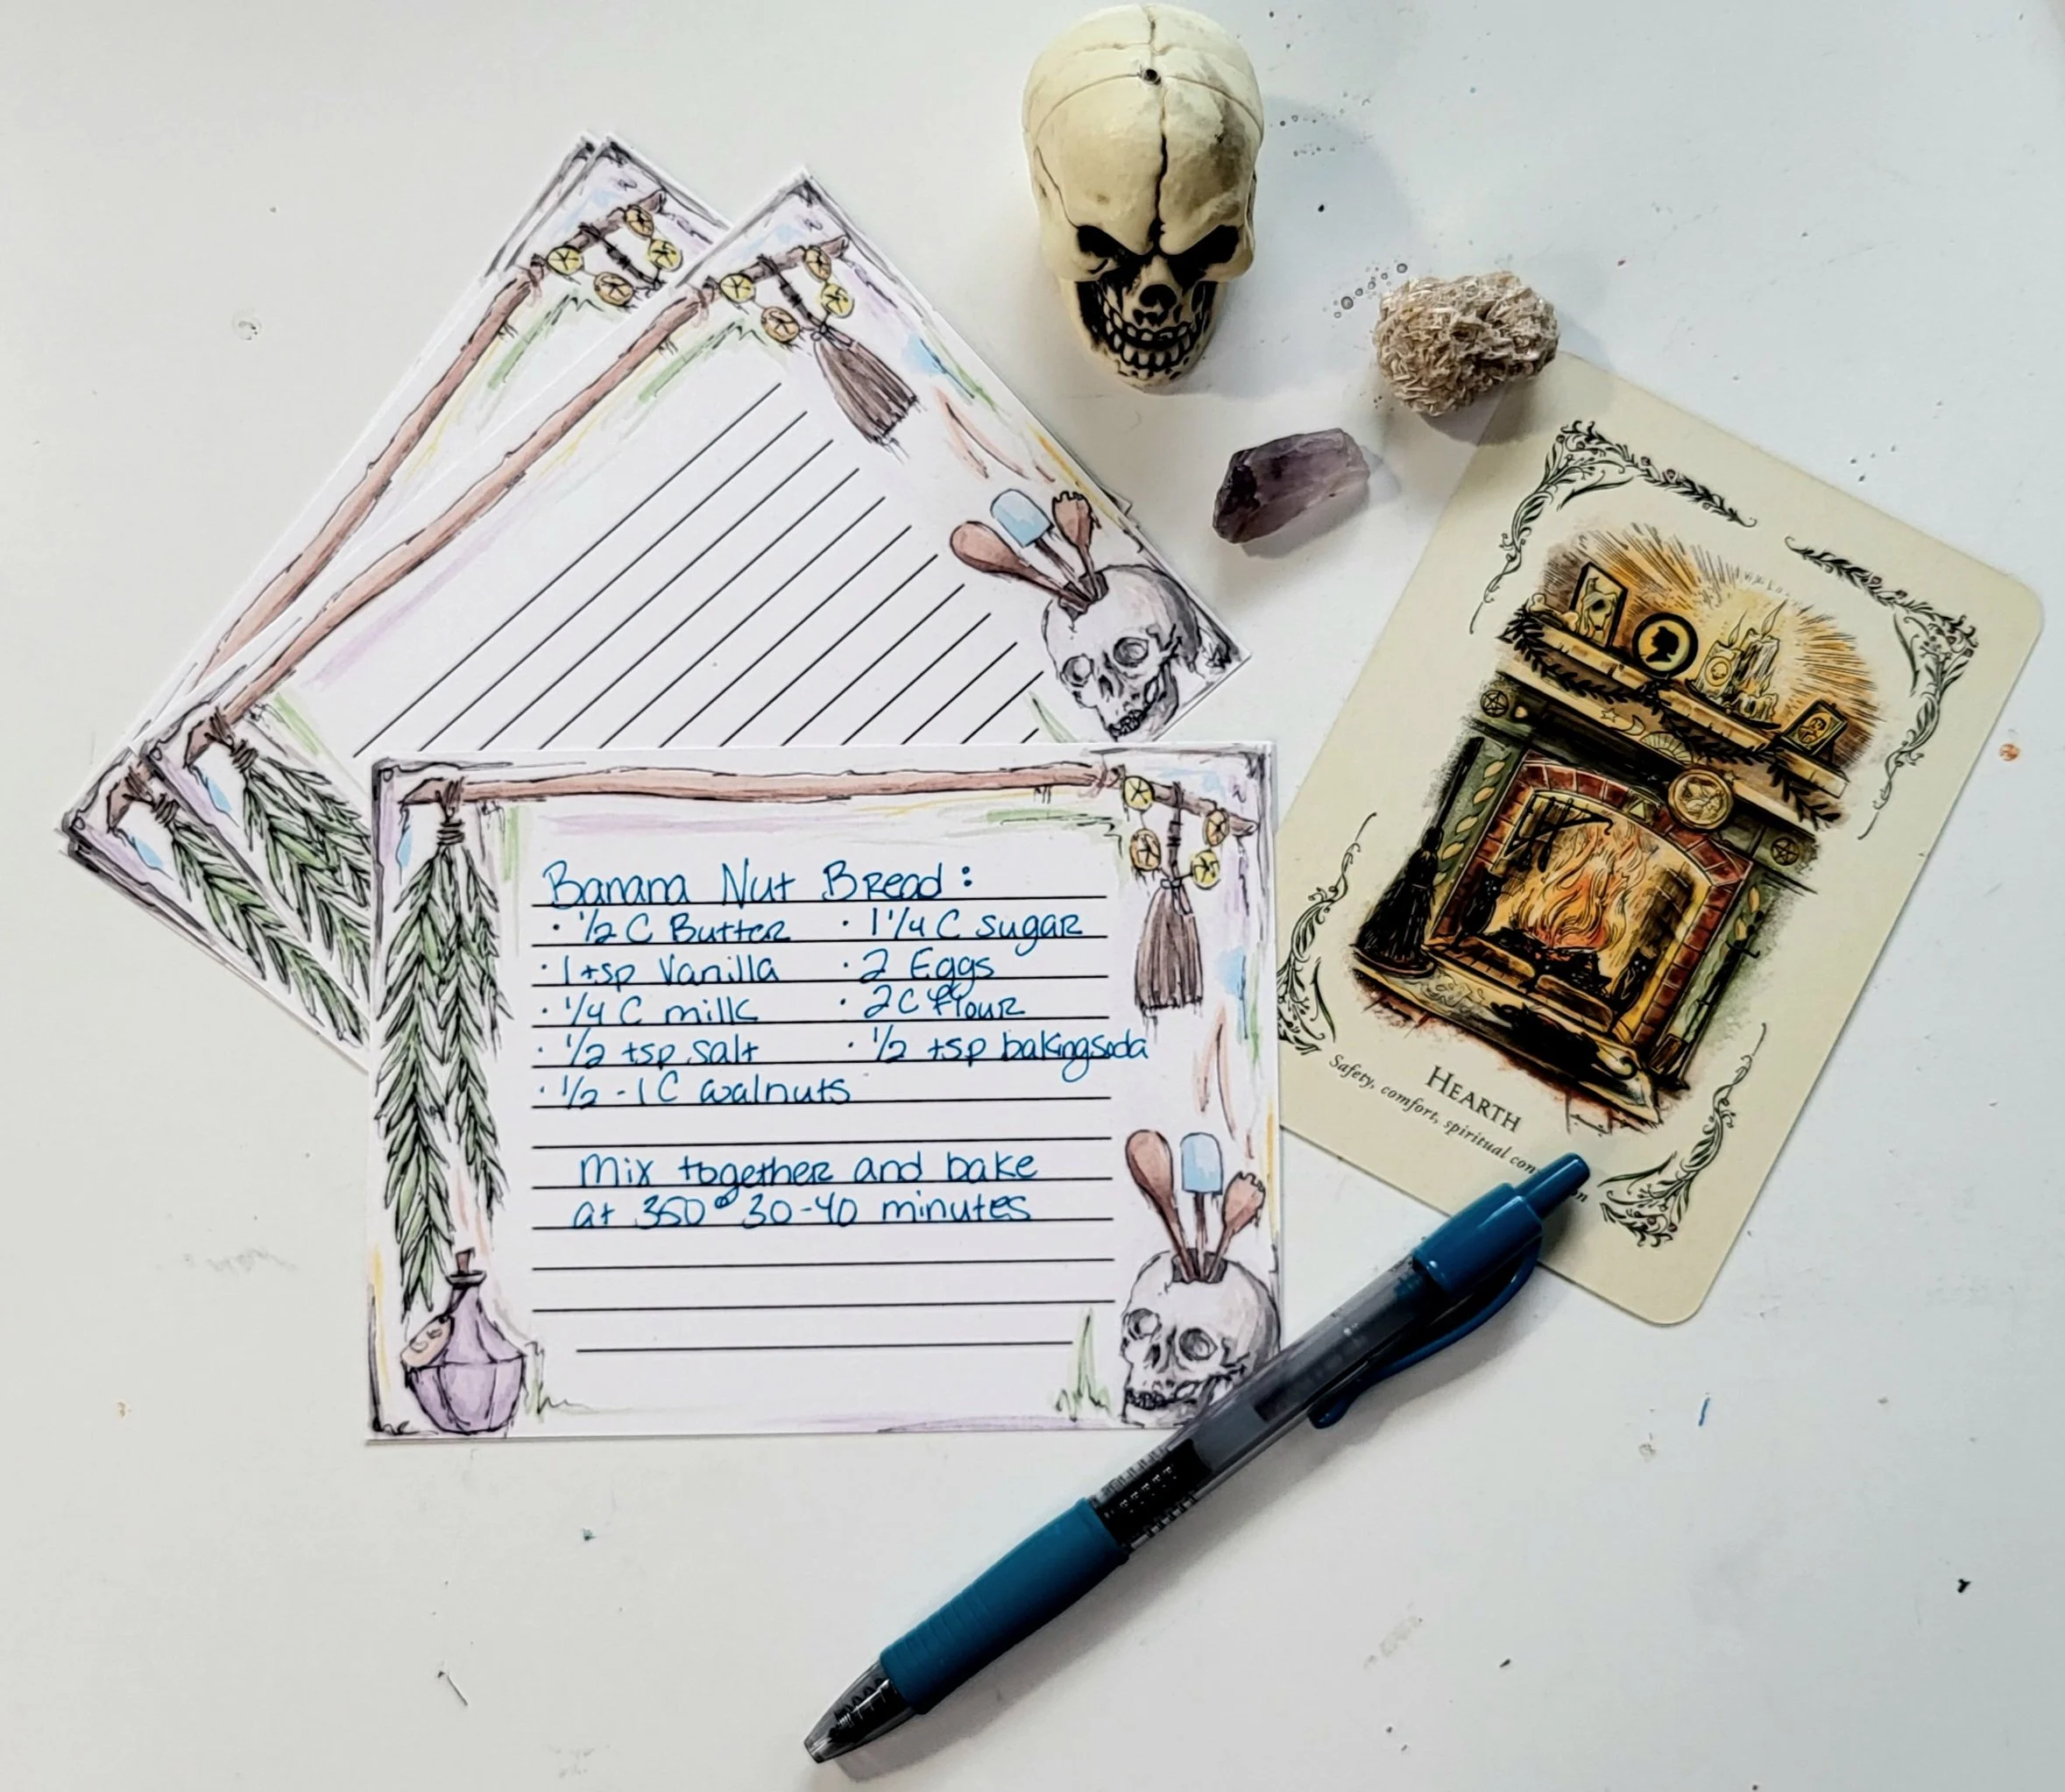 Banana Nut Bread:
· 1/2 C Butter · 1 1/4 C sugar
· 1 tsp Vanilla · 2 Eggs
· 1/4 C milk · 2 C flour
· 1/2 tsp salt · 1/2 tsp baking soda
· 1/2 - 1 C walnuts
mix together and bake
at 350° 30-40 minutes
HEARTH
Safety, comfort, spiritual